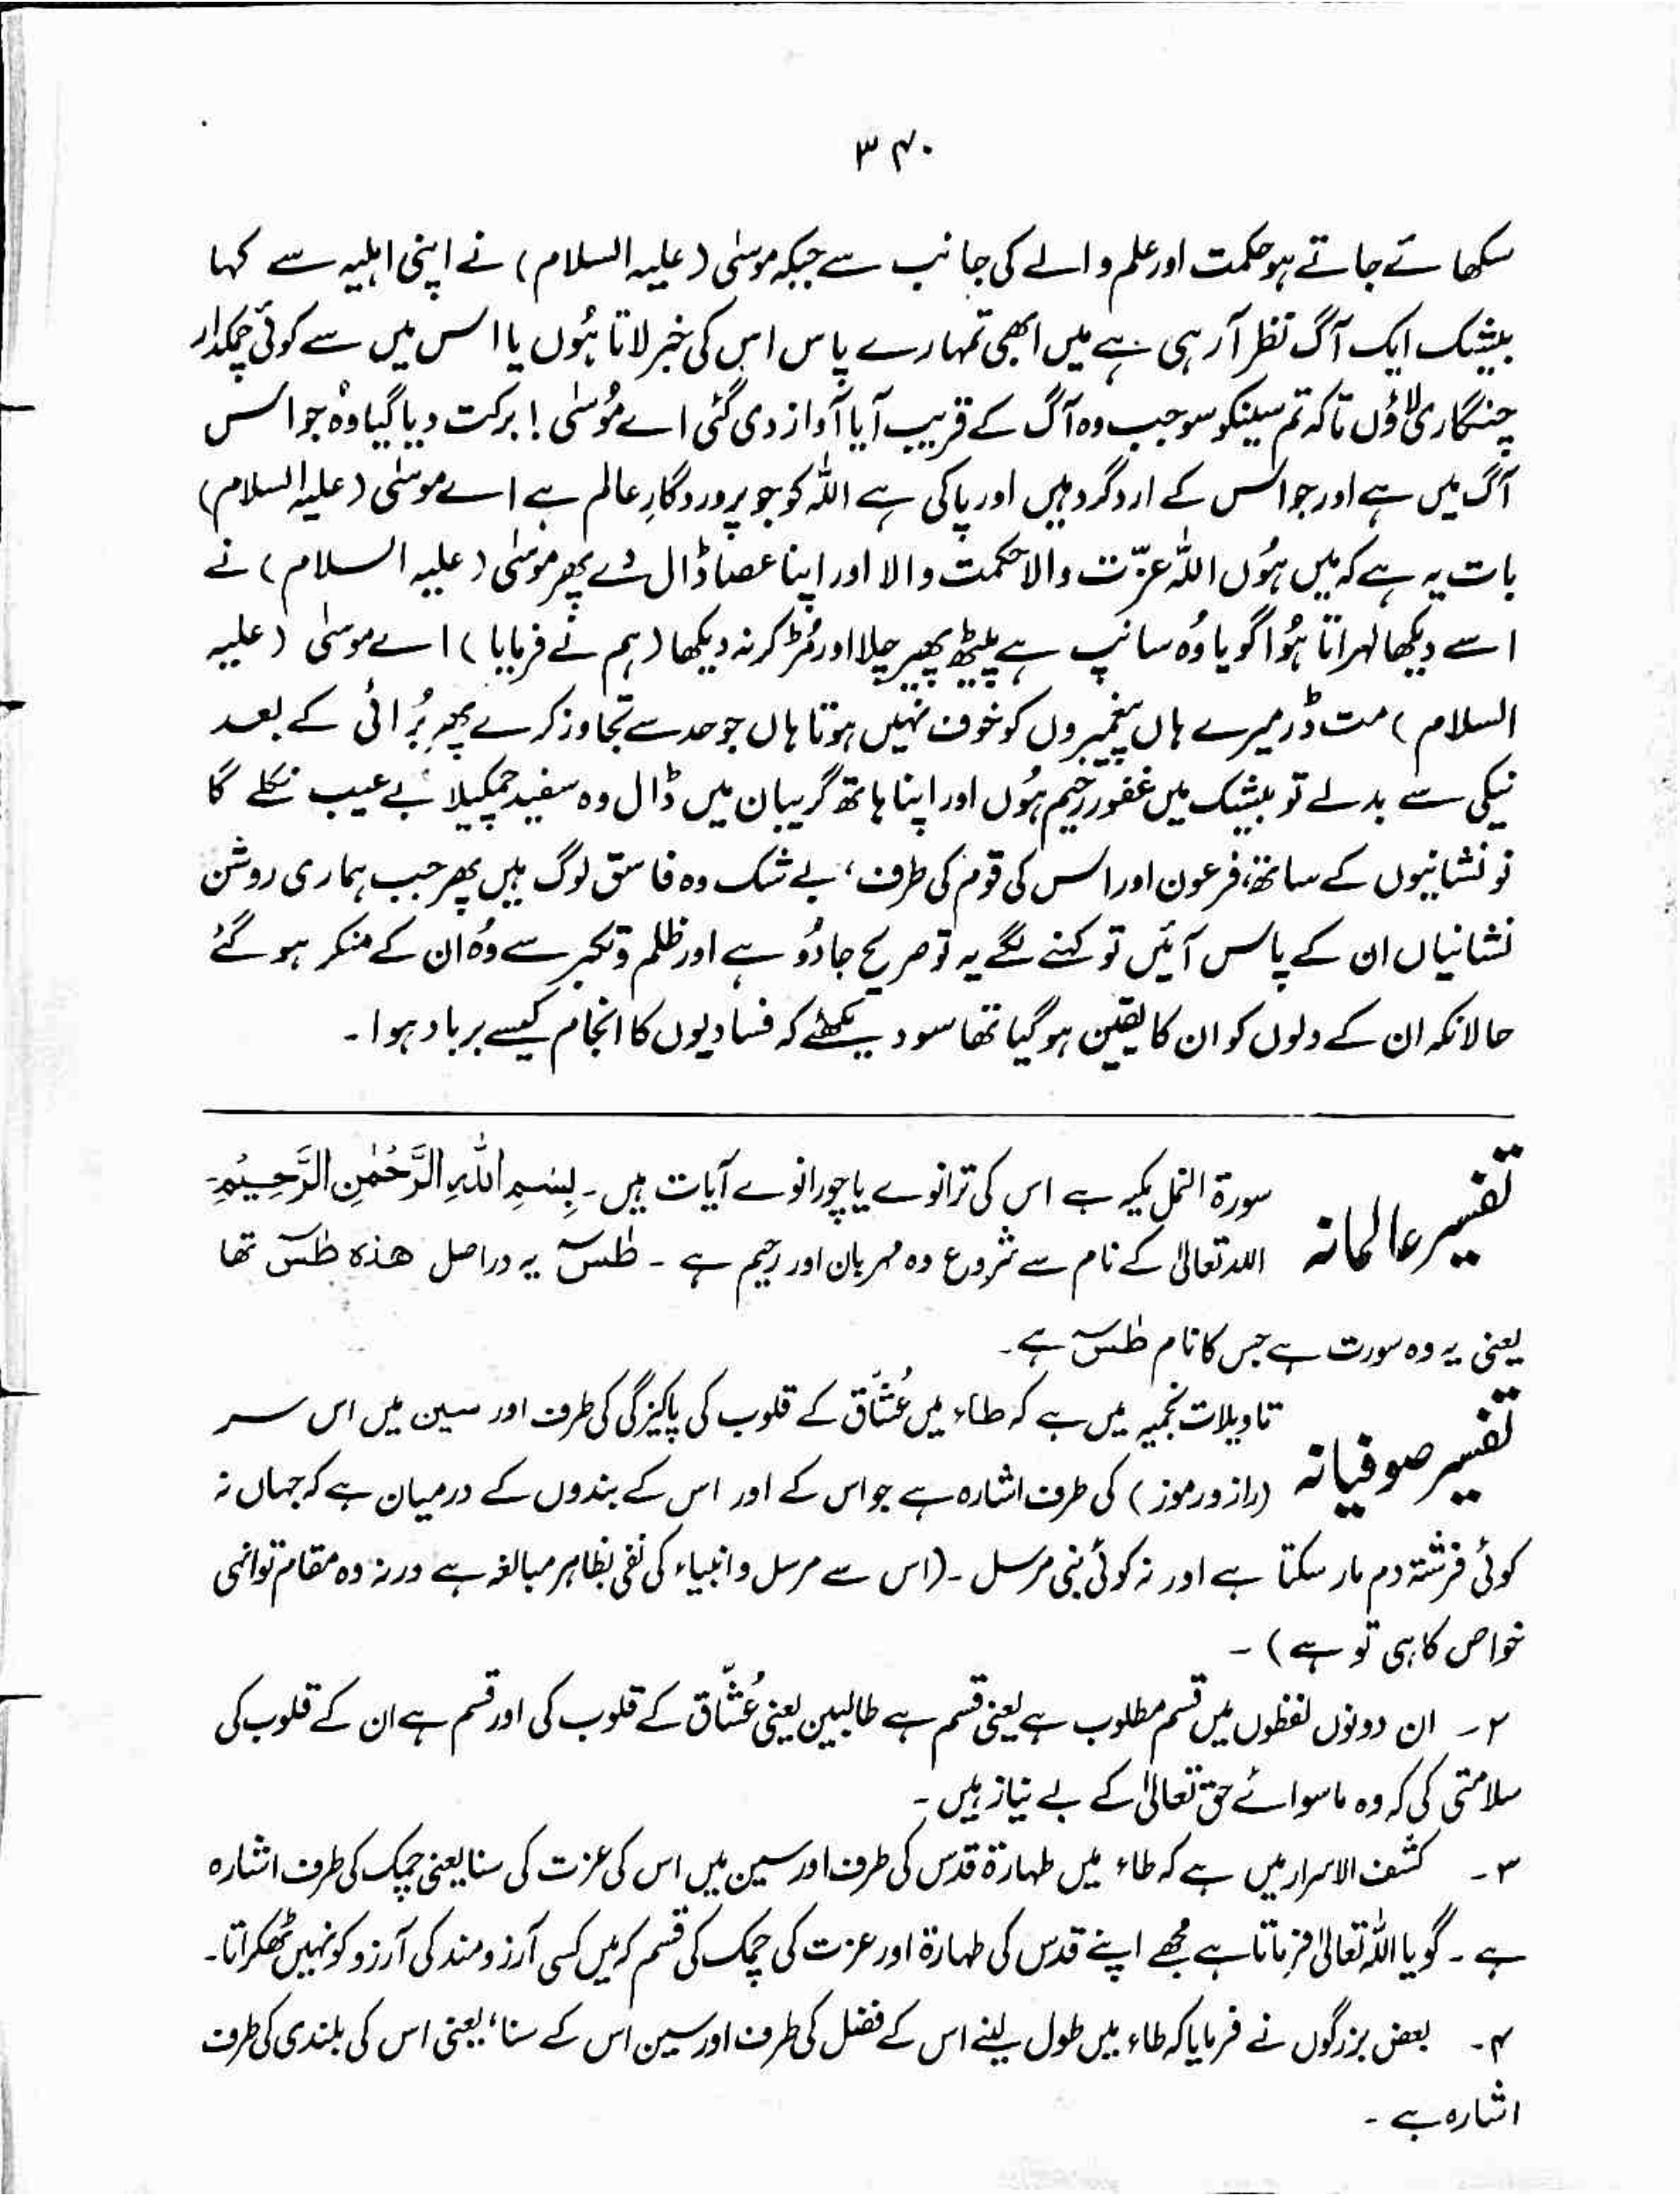 ۳۴۰
سکھائے جاتے ہو حکمت اور علم والے کی جانب سے جبکہ موسٰی (علیہ السلام) نے اپنی اہلیہ سے کہا
بیشک ایک آگ نظر آرہی ہے میں ابھی تمہارے پاس اس کی خبر لاتا ہُوں یا اس میں سے کوئی چمکدار
چنگاری لاؤں تاکہ تم سینکو سو جب وہ آگ کے قریب آیا آواز دی گئی اے مُوسٰی ! برکت دیا گیا وُہ جو اس
آگ میں ہے اور جو اس کے ارد گرد ہیں اور پاکی ہے اللہ کو جو پروردگارِ عالم ہے اے موسٰی (علیہ السلام)
بات یہ ہے کہ میں ہُوں اللہ عزّت والا حکمت والا اور اپنا عصا ڈال دے پھر موسٰی (علیہ السلام) نے
اسے دیکھا لہراتا ہُوا گویا وُہ سانپ ہے پیٹھ پھیر چلا اور مُڑ کر نہ دیکھا (ہم نے فرمایا) اے موسٰی (علیہ
السلام) مت ڈر میرے ہاں پیغمبروں کو خوف نہیں ہوتا ہاں جو حد سے تجاوز کرے پھر بُرائی کے بعد
نیکی سے بدلے تو بیشک میں غفور رحیم ہُوں اور اپنا ہاتھ گریبان میں ڈال وہ سفید چمکیلا بے عیب نکلے گا
نو نشانیوں کے ساتھ، فرعون اور اس کی قوم کی طرف، بے شک وہ فاسق لوگ ہیں پھر جب ہماری روشن
نشانیاں ان کے پاس آئیں تو کہنے لگے یہ تو صریح جادُو ہے اور ظلم و تکبر سے وُہ ان کے منکر ہو گئے
حالانکہ ان کے دلوں کو ان کا یقین ہو گیا تھا سو دیکھئے کہ فسادیوں کا انجام کیسے برباد ہوا۔
تفسیر عالمانہ سورۃ النمل مکیہ ہے اس کی ترانوے یا چورانوے آیات ہیں۔ بِسْمِ اللّٰهِ الرَّحْمٰنِ الرَّحِيْمِ۔
اللہ تعالٰی کے نام سے شروع وہ مہربان اور رحیم ہے۔ طٰسٓ یہ دراصل هذه طٰسٓ تھا
یعنی یہ وہ سورت ہے جس کا نام طٰسٓ ہے۔
تفسیر صوفیانہ تاویلات نجمیہ میں ہے کہ طاء میں عُشّاق کے قلوب کی پاکیزگی کی طرف اور سین میں اس سر
(راز و رموز) کی طرف اشارہ ہے جو اس کے اور اس کے بندوں کے درمیان ہے کہ جہاں نہ
کوئی فرشتہ دم مار سکتا ہے اور نہ کوئی نبی مرسل۔ (اس سے مرسل و انبیاء کی نفی بظاہر مبالغہ ہے ورنہ وہ مقام تو انہی
خواص کا ہی تو ہے)۔
۲۔ ان دونوں لفظوں میں قسم مطلوب ہے یعنی قسم ہے طالبین یعنی عُشّاق کے قلوب کی اور قسم ہے ان کے قلوب کی
سلامتی کی کہ وہ ماسوائے حق تعالٰی کے بے نیاز ہیں۔
۳۔ کشف الاسرار میں ہے کہ طاء میں طہارۃ قدس کی طرف اور سین میں اس کی عزت کی سنا یعنی چمک کی طرف اشارہ
ہے۔ گویا اللہ تعالٰی فرماتا ہے مجھے اپنے قدس کی طہارۃ اور عزت کی چمک کی قسم کہ میں کسی آرزو مند کی آرزو کو نہیں ٹھکراتا۔
۴۔ بعض بزرگوں نے فرمایا کہ طاء میں طول لینے اس کے فضل کی طرف اور سین اس کے سنا، یعنی اس کی بلندی کی طرف
اشارہ ہے۔